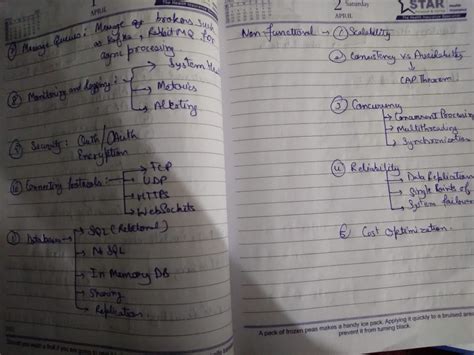 1
APRIL
7 Message Queues: Message brokers such
as Kafka & RabbitMQ for
async processing
8 Monitoring and logging:
System
Metrics
Alerting
Security: Auth/OAuth
Encryption
Connecting protocols:
TCP
UDP
HTTPs
WebSockets
Databases
SQL (Relational)
NoSQL
In Memory DB
Replication
2 Saturday
APRIL
STAR Health
Insurance
The Health Insurance Specialist
Non functional → 1 Scalability
2 Consistency vs Availability
CAP Theorem
3 Concurrency
Concurrent Processing
Multithreading
Synchronization
4 Reliability
Data Replication
Single Points of
System failures
5 Cost Optimization.
A pack of frozen peas makes a handy ice pack. Applying it quickly to a bruised area
prevent it from turning black.